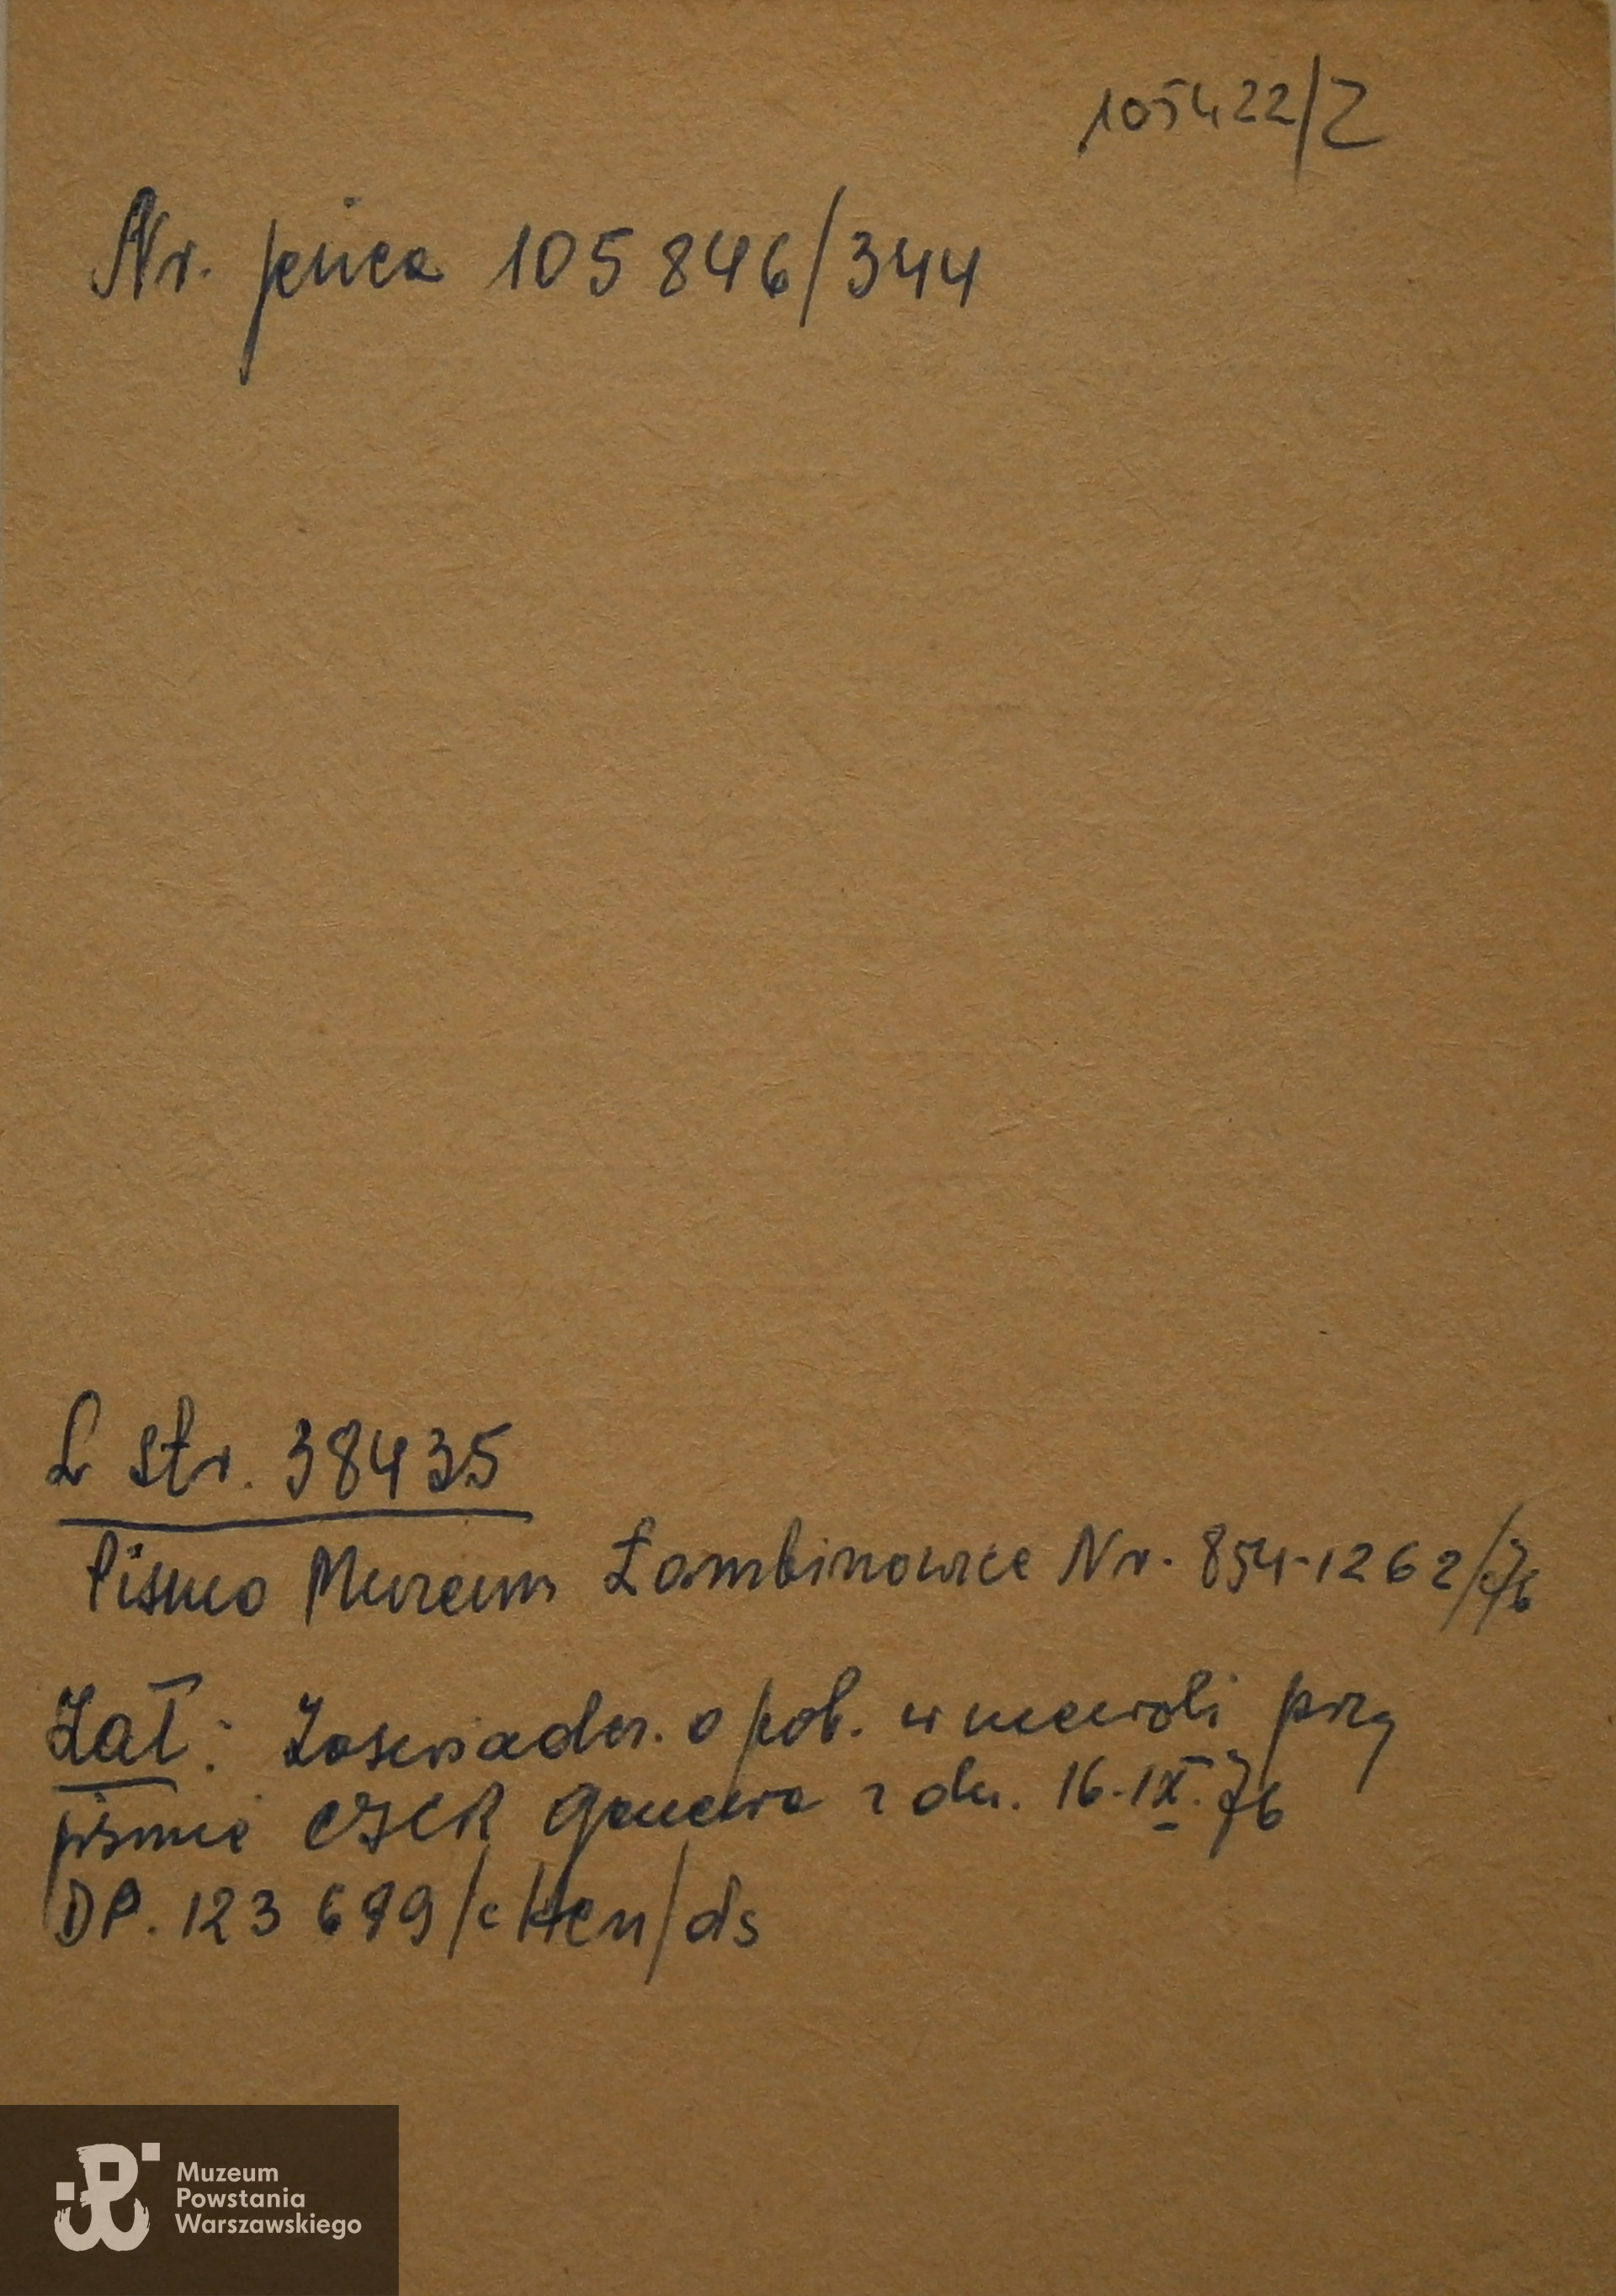 105422/Z
Nr. jeńca 105846/344
L str. 38435
Pismo Muzeum Łambinowice Nr. 854-1262/76
Zał: Zaświadcz. o pob. w niewoli przy
piśmie CICR Genewa z dn. 16-IX.76
DP. 123 699/ /ds
Muzeum
Powstania
Warszawskiego